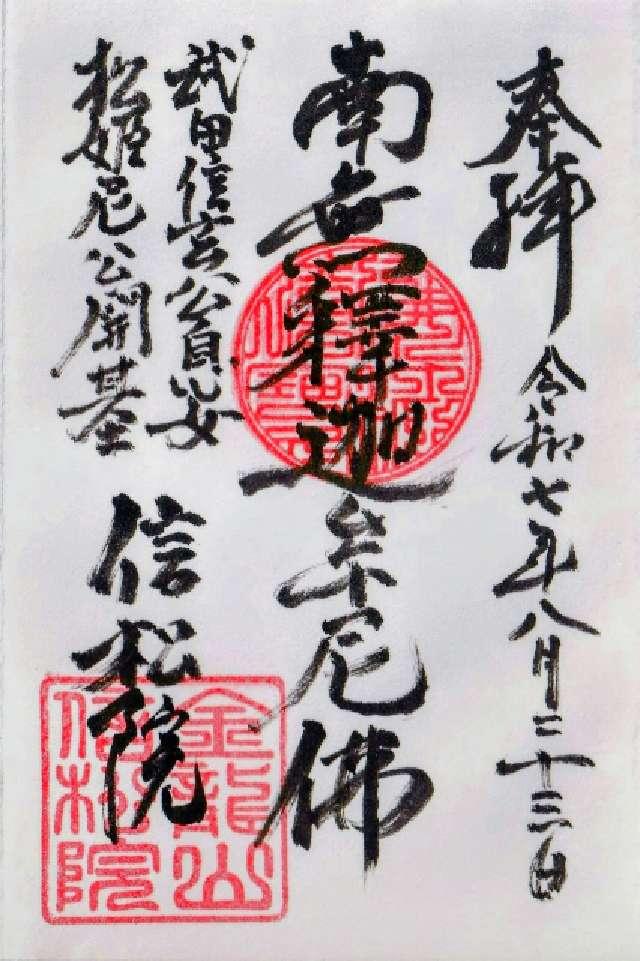 奉拝
令和七年八月二十三日
南無釋迦牟尼佛
武田信玄公四女
松姫尼公開基
信松院
金龍山
信松院